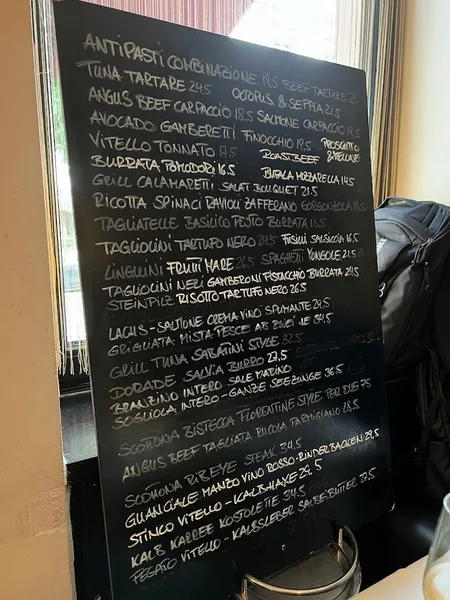 ANTIPASTI COMBINAZIONE 19.5 BEEF TARTARE 25
TUNA TARTARE 24.5 OCTOPUS & SEPPIA 21.5
ANGUS BEEF CARPACCIO 18.5 SALMONE CARPACCIO 19.5
AVOCADO GAMBERETTI FINOCCHIO 19.5 PROSCIUTTO & MELONE
VITELLO TONNATO 17.5 ROASTBEEF
BURRATA POMODORI 16.5 BUFALA MOZZARELLA 14.5
GRILL CALAMARETTI SALAT BOUQUET 21.5
RICOTTA SPINACI RAVIOLI ZAFFERANO GORGONZOLA
TAGLIATELLE BASILICO PESTO BURRATA 18.5
TAGLIOLINI TARTUFO NERO 24.5 FUSILLI SALSICCIA 16.5
LINGUINI FRUTTI MARE 26.5 SPAGHETTI VONGOLE 21.5
TAGLIOLINI NERI GAMBERONI PISTACCHIO BURRATA 24.5
STEINPILZ RISOTTO TARTUFE NERO 26.5
LACHS - SALMONE CREMA VINO SPUMANTE 29.5
GRIGLIATA MISTA PESCE AB ZWEI JE 34.5
GRILL TUNA SABATINI STYLE 32.5
DORADE SALVIA BURRO 27.5
BRANZINO INTERO SALE MARINO
SOGLIOLA INTERO - GANZE SEEZUNGE 36.5
SCOTTONA BISTECCA FLORENTINE STYLE PER DUE 75
ANGUS BEEF TAGLIATA RUCOLA PARMIGIANO 28.5
SCOTTONA RIBEYE STEAK 34.5
GUANCIALE MANZO VINO ROSSO - RINDERBACKEN 29.5
STINCO VITELLO - KALBSHAXE 29.5
KALB KARREE KOTOLETTE 34.5
FEGATO VITELLO - KALBSLEBER SALBE BUTTER 27.5